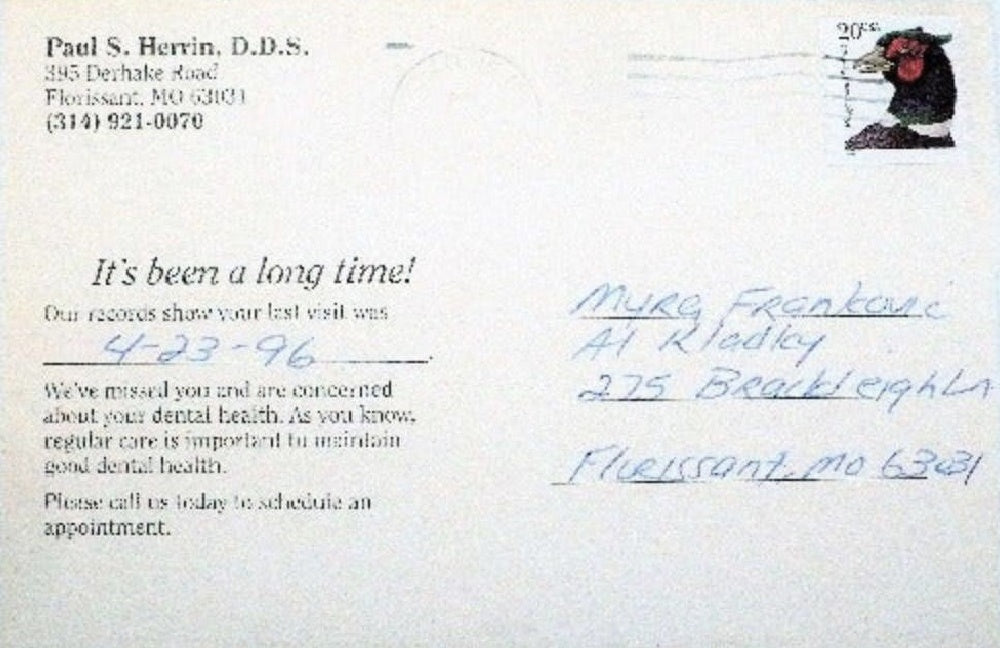 Paul S. Herrin, D.D.S.
395 Derhake Road
Florissant, MO 63031
(314) 921-0070
20 USA
It's been a long time!
Our records show your last visit was
4-23-96.
We've missed you and are concerned
about your dental health. As you know,
regular care is important to maintain
good dental health.
Please call us today to schedule an
appointment.
Myra Frankovic
Al Kladky
275 Brackleigh Ln
Florissant, Mo 63031